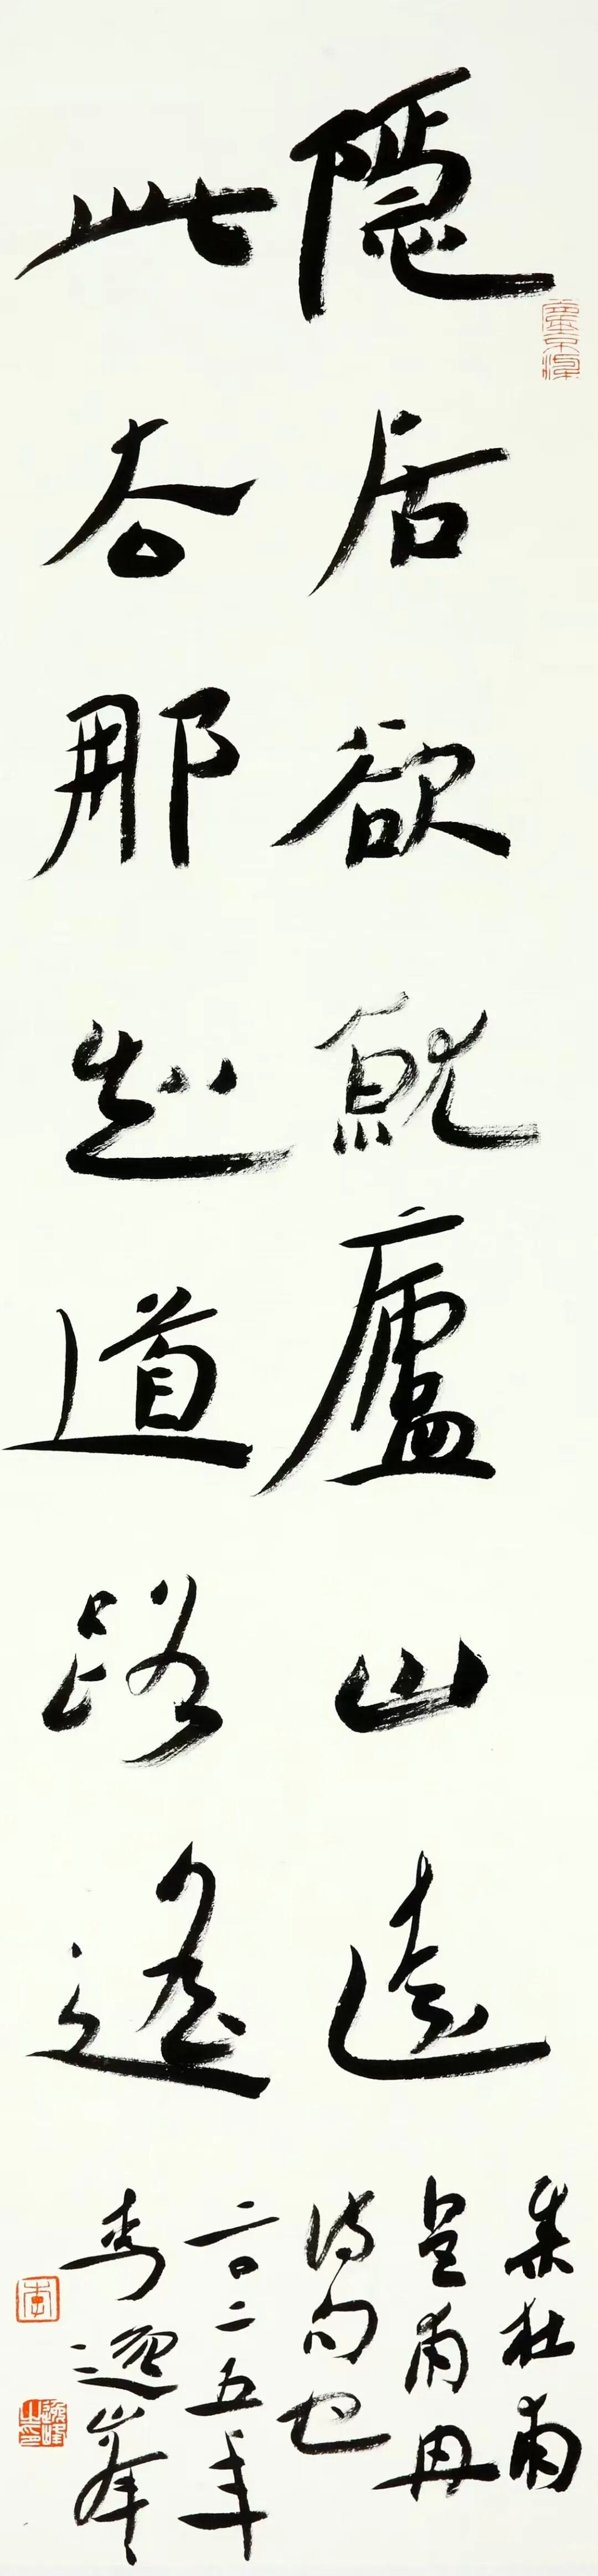 隱居欲就廬山遠
此去那知道路遙
集杜甫
皇甫冉
詩句也
二〇二五年
李逸峯
李
逸峰之印